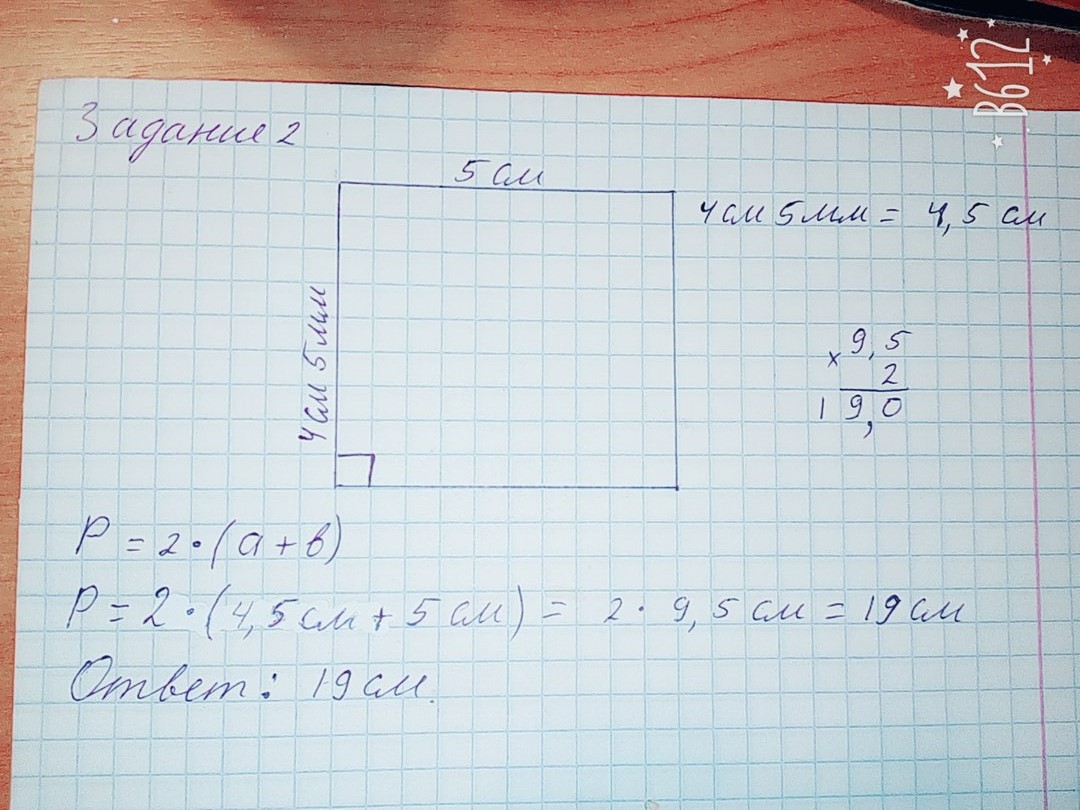 B612
Задание 2
5 см
4 см 5 мм = 4,5 см
4 см 5 мм
× 9,5
2
19,0
P = 2 · (a + b)
P = 2 · (4,5 см + 5 см) = 2 · 9,5 см = 19 см
Ответ: 19 см.